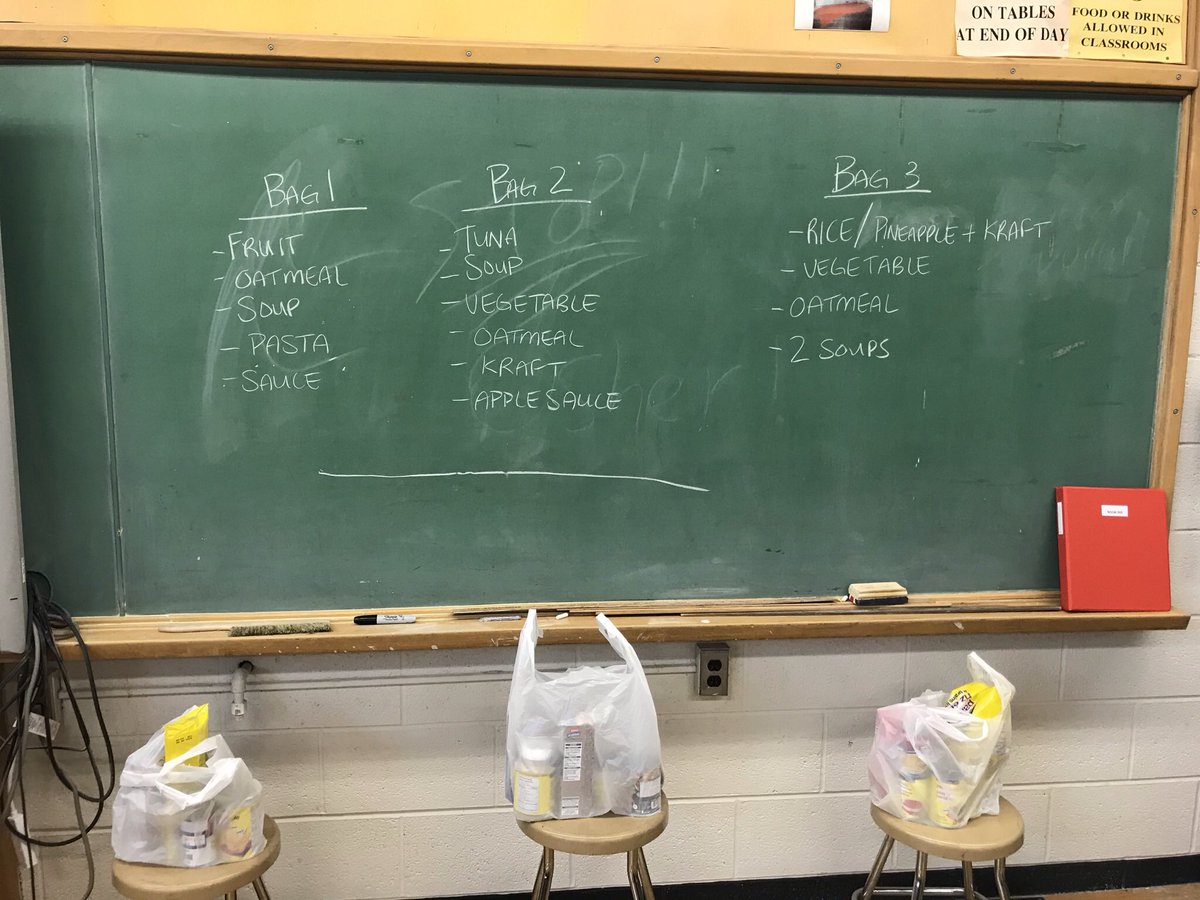 ON TABLES
AT END OF DAY
FOOD OR DRINKS
ALLOWED IN
CLASSROOMS
BAG 1
- FRUIT
- OATMEAL
- SOUP
- PASTA
- SAUCE
BAG 2
- TUNA
- SOUP
- VEGETABLE
- OATMEAL
- KRAFT
- APPLESAUCE
BAG 3
- RICE/PINEAPPLE + KRAFT
- VEGETABLE
- OATMEAL
- 2 SOUPS